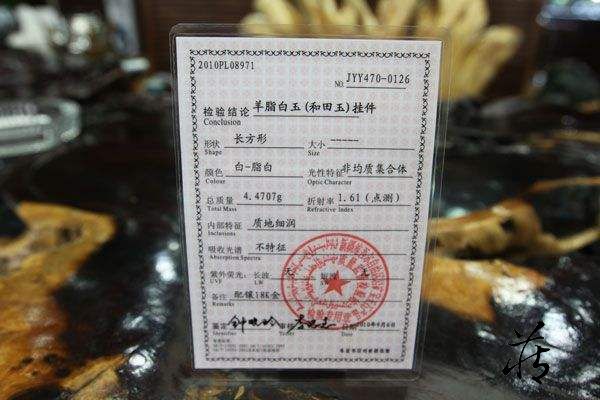 2010PL08971
NO. JYY470-0126
检验结论 羊脂白玉(和田玉)挂件
Conclusion
形状 长方形 大小 -----
Shape Size
颜色 白-脂白 光性特征 非均质集合体
Colour Optic Character
总质量 4.4707g 折射率 1.61 (点测)
Total Mass Refractive Index
内部特征 质地细润
Inclusions
吸收光谱 不特征
Absorption Spectra
紫外荧光: 长波 无 短波 无
UVF LW
备注 配镶18K金
Remarks
鉴定
Identifier
日期 2010年